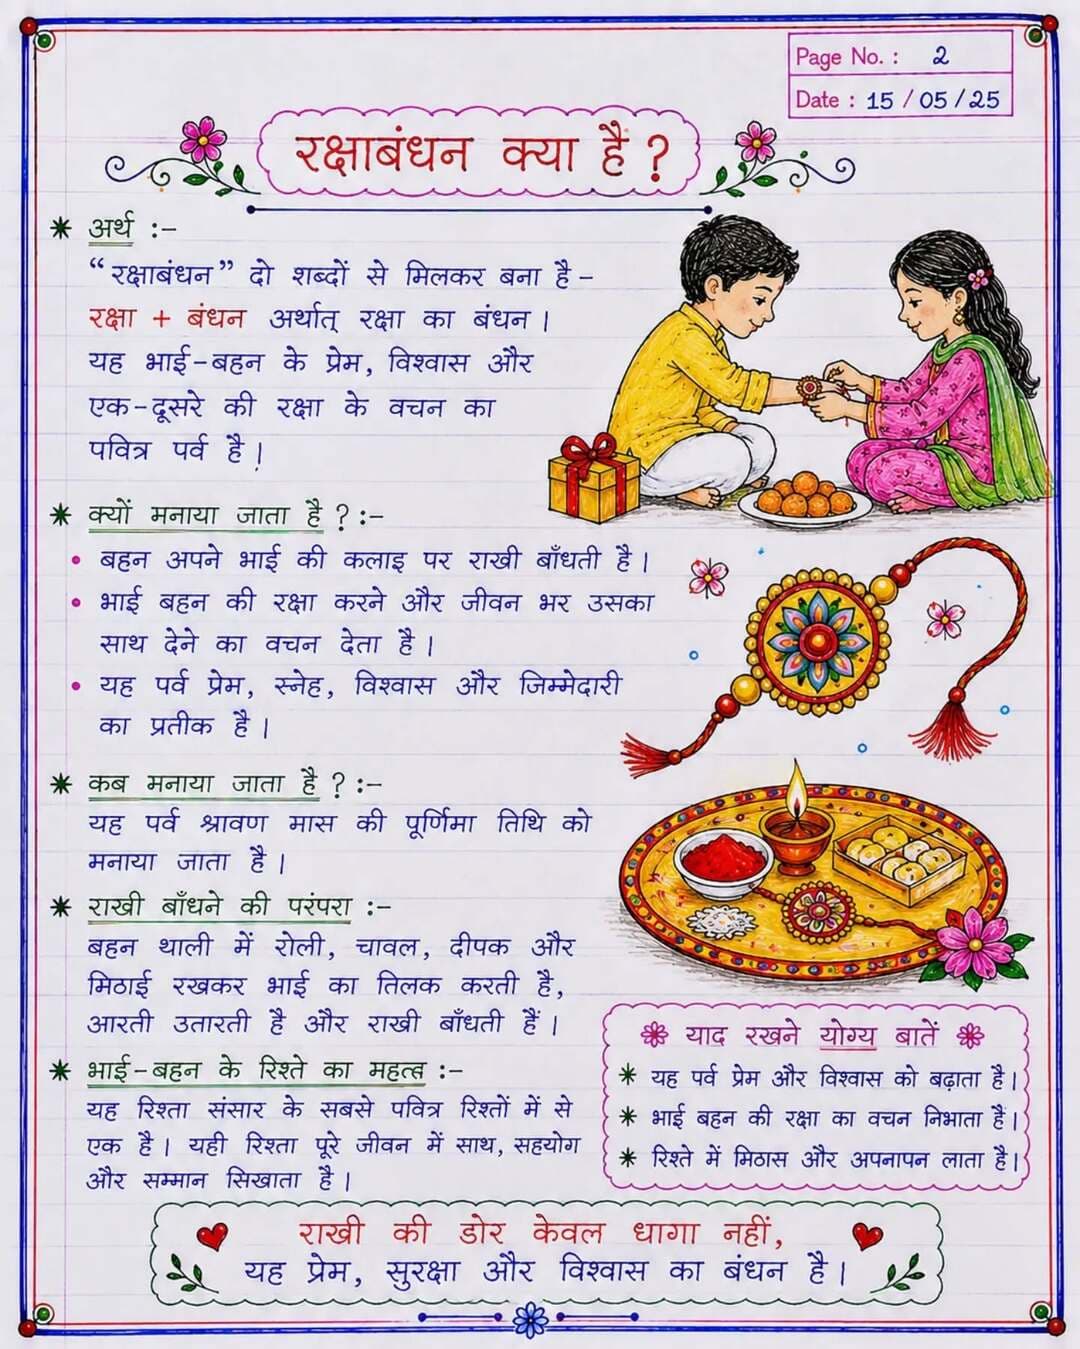 Page No. : 2
Date : 15 / 05 / 25
रक्षाबंधन क्या है ?
अर्थ :-
“रक्षाबंधन” दो शब्दों से मिलकर बना है -
रक्षा + बंधन अर्थात् रक्षा का बंधन |
यह भाई-बहन के प्रेम, विश्वास और
एक-दूसरे की रक्षा के वचन का
पवित्र पर्व है |
क्यों मनाया जाता है ? :-
• बहन अपने भाई की कलाइ पर राखी बाँधती है |
• भाई बहन की रक्षा करने और जीवन भर उसका
साथ देने का वचन देता है |
• यह पर्व प्रेम, स्नेह, विश्वास और जिम्मेदारी
का प्रतीक है |
कब मनाया जाता है ? :-
यह पर्व श्रावण मास की पूर्णिमा तिथि को
मनाया जाता है |
राखी बाँधने की परंपरा :-
बहन थाली में रोली, चावल, दीपक और
मिठाई रखकर भाई का तिलक करती है,
आरती उतारती है और राखी बाँधती हैं |
भाई-बहन के रिश्ते का महत्व :-
यह रिश्ता संसार के सबसे पवित्र रिश्तों में से
एक है | यही रिश्ता पूरे जीवन में साथ, सहयोग
और सम्मान सिखाता है |
याद रखने योग्य बातें
यह पर्व प्रेम और विश्वास को बढ़ाता है |
भाई बहन की रक्षा का वचन निभाता है |
रिश्ते में मिठास और अपनापन लाता है |
राखी की डोर केवल धागा नहीं,
यह प्रेम, सुरक्षा और विश्वास का बंधन है |